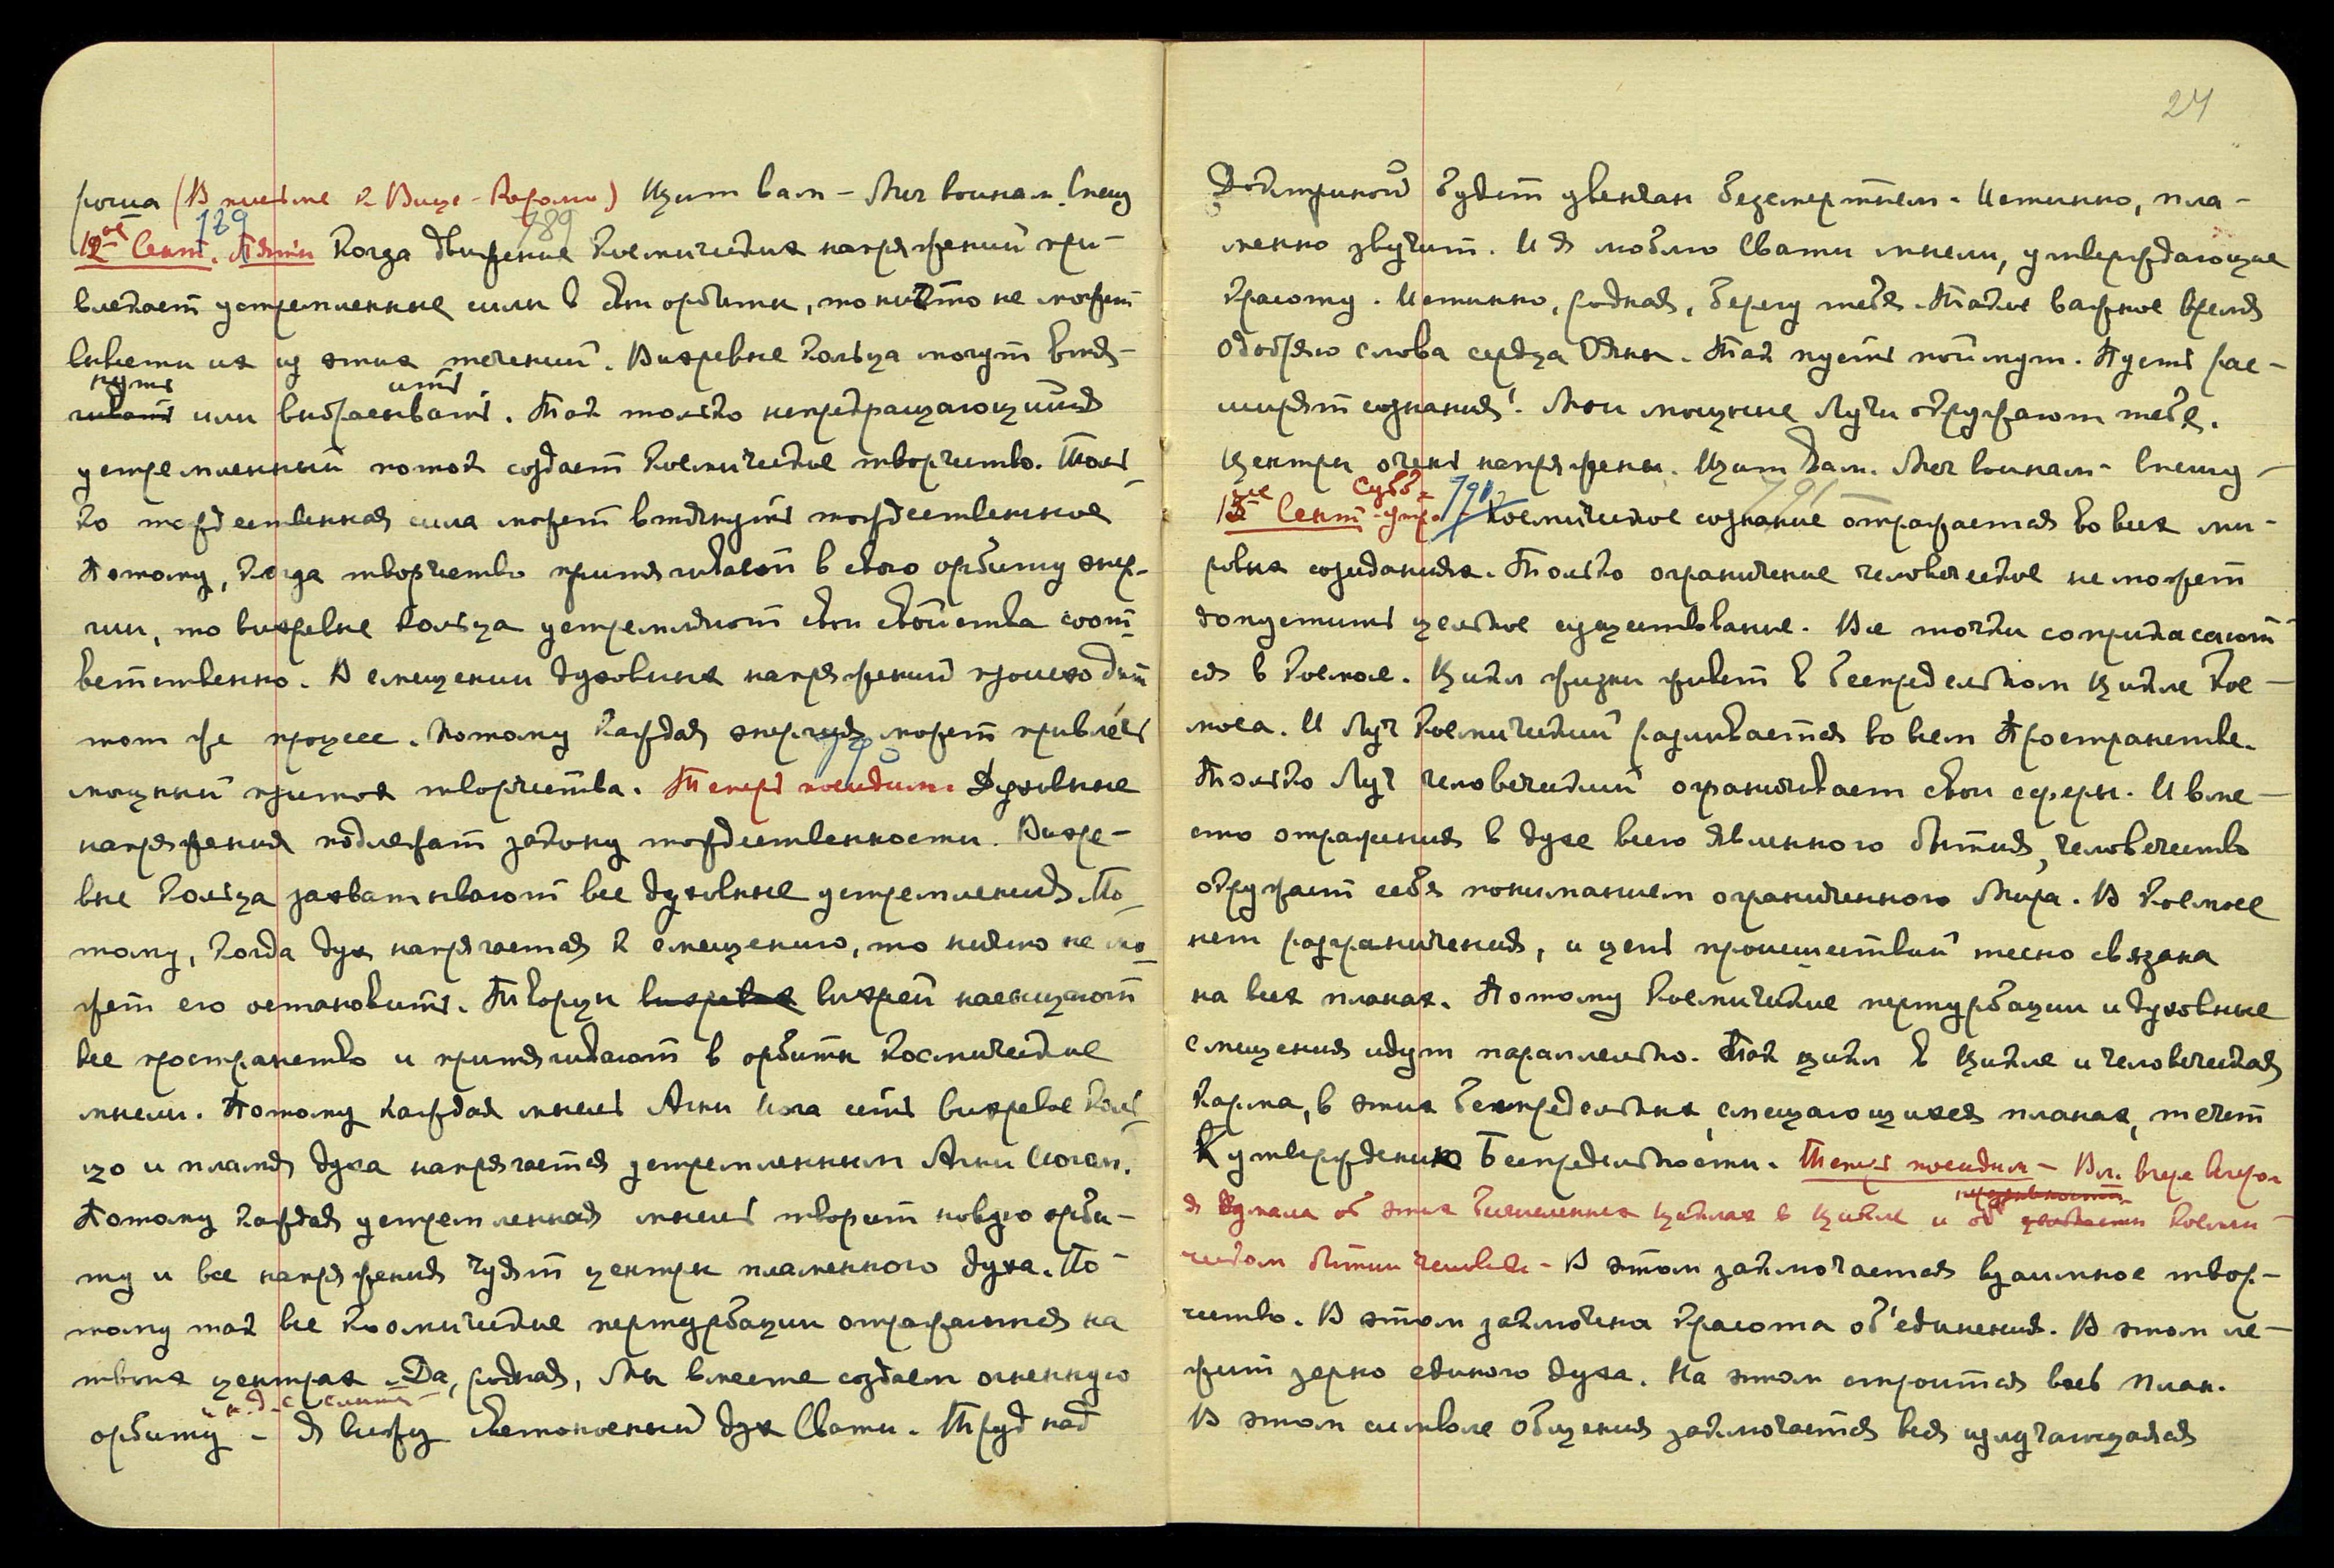 рогиа (В письме к Вице-Королю) Щит вам – Меч воинам. Спешу
12ое Сент. Пятн 789 789 Когда движение космических напряжений при-
влекает устремленные силы в свои орбиты, то ничто не может
вывести их из этих течений. Вихревые кольца могут втя-
нуть
гивать или выбрасывать. Так только непрекращающийся
устремленный поток создает космическое творчество. Толь-
ко тождественная сила может втянуть тождественное
Потому, когда творчество притягивает в свою орбиту энер-
гии, то вихревые кольца устремляют свои свойства соот-
ветственно. В смещении духовных напряжений происходит
тот же процесс. Потому каждая энергия может привлечь
мощный приток творчества. 790 Теперь посидим. Духовные
напряжения подлежат закону тождественности. Вихре-
вые кольца захватывают все духовные устремления. По-
тому, когда дух напрягается к смещению, то ничто не мо-
жет его остановить. Творцы вихревых вихрей насыщают
все пространство и притягивают в орбиты космические
мысли. Потому каждая мысль Агни Йога есть вихревое коль-
цо и пламя духа напрягается устремленным Агни Йогом.
Потому каждая устремленная мысль творит новую орби-
ту и все напряжения чуят центры пламенного духа. По-
тому так все космические пертурбации отражаются на
твоих центрах. Да, родная, Мы вместе создаем огненную
орбиту – Я вижу светоносный дух Свати. Труд над
24
Доктриной будет увенчан безсмертием. Истинно, пла-
менно звучит. И Я люблю Свати мысли, утверждающие
красоту. Истинно, родная, берегу тебя. Такое важное время
Одобряю слова сердца Ояны. Так пусть поймут. Пусть рас-
ширят сознания! Мои мощные Лучи окружают тебя.
Центры очень напряжены. Щит Вам. Меч воинам – Спешу –
13ое Сент. Субб. утро – 791 791 Космическое сознание отражается во всех ми-
ровых созиданиях. Только ограничение человеческое не может
допустить цельное существование. Все точки соприкасают-
ся в Космосе. Цикл жизни живет в беспредельном цикле Кос-
моса. И Луч Космический разливается во всем Пространстве.
Только Луч человеческий ограничивает свои сферы. И вме-
сто отражения в духе всего явленного бытия, человечество
окружает себя пониманием ограниченного Мира. В Космосе
нет разграничения, и цепь происшествий тесно связана
на всех планах. Потому Космические пертурбации и духовные
смещения идут параллельно. Так цикл в цикле и человеческая
Карма, в этих беспредельных, смещающихся планах, течет
К утверждению Беспредельности. Теперь посидим – Вл. вчера вечером
я думала об этих бесчисленных циклах в цикле и об Косми-
ческом бытии человека – В этом заключается взаимное твор-
чество. В этом заключена красота об'единения. В этом ле-
жит зерно единого духа. На этом строится весь план.
В этом символе общения заключается вся излучающаяся